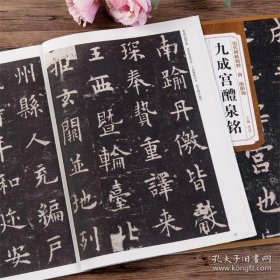 南踰丹徼皆
琛奉贄重譯來
西暨輪臺北
玄闕並地列
州縣人充編戶
年和迩安
九成宫醴泉铭
孔夫子旧书网